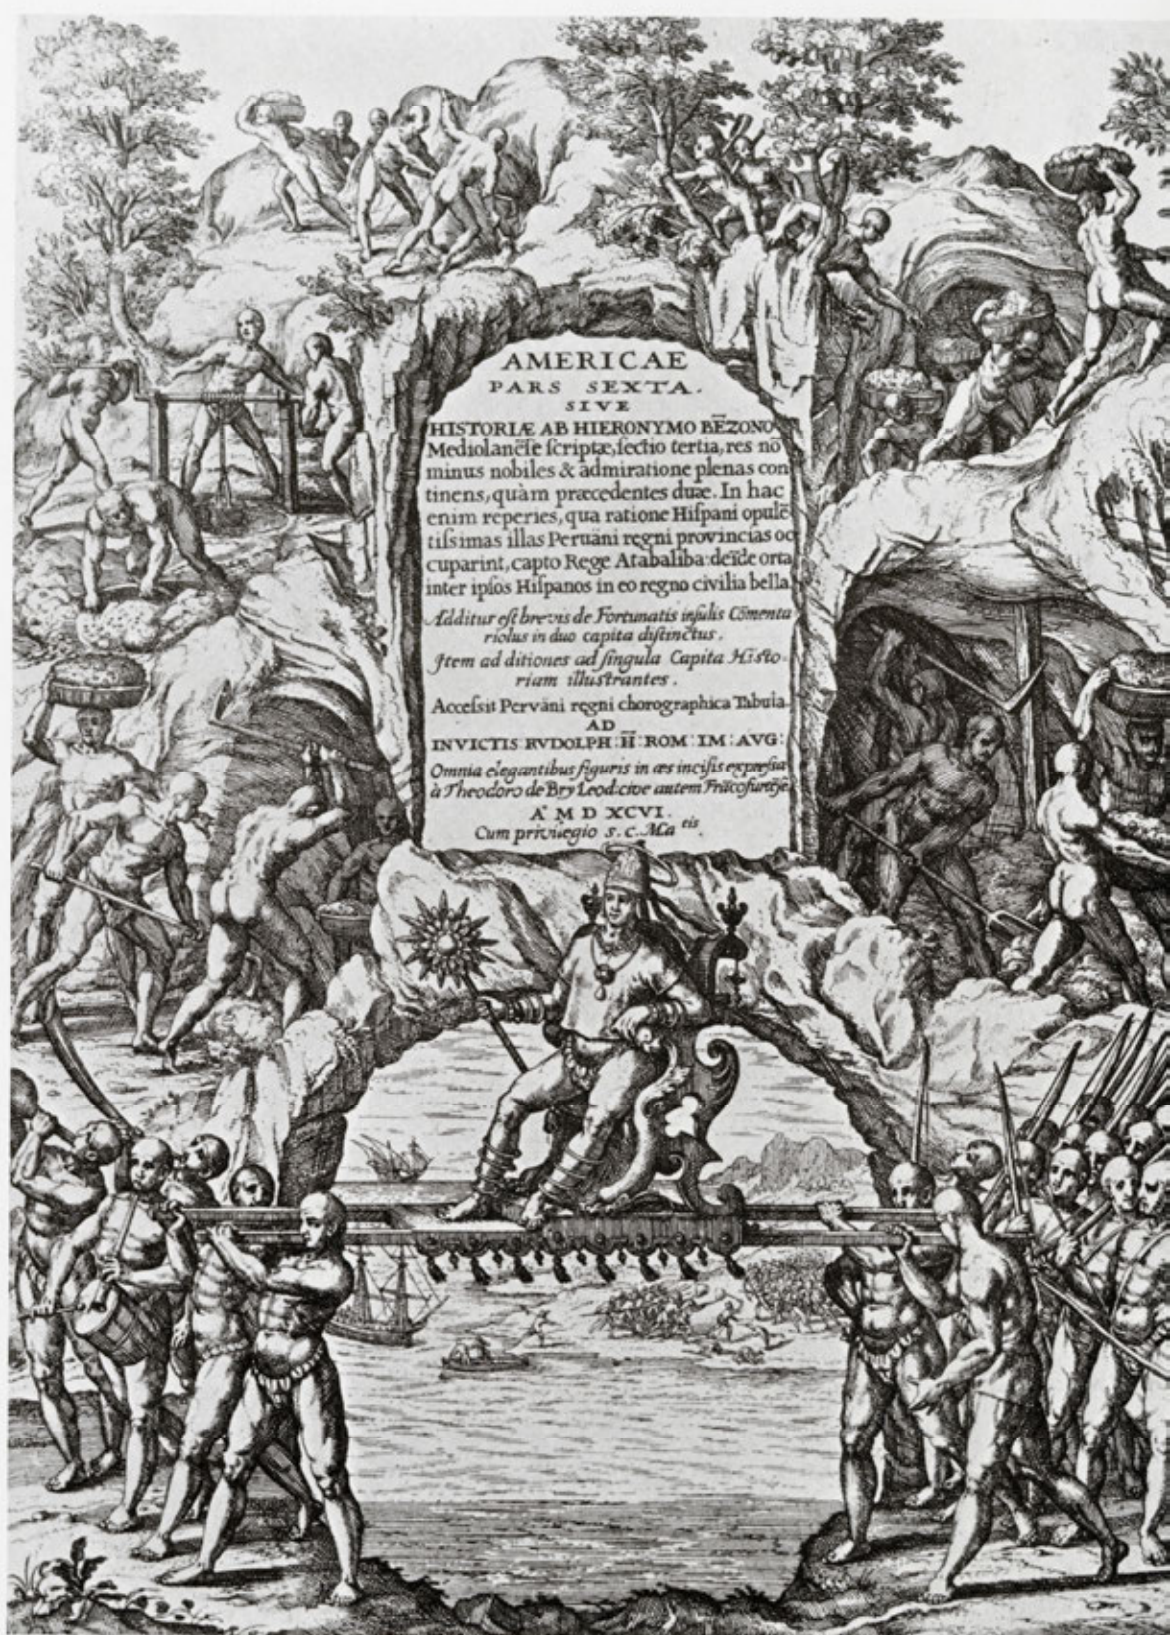 AMERICAE
PARS SEXTA.
SIVE
HISTORIÆ AB HIERONYMO BĒZONO
Mediolanēſe ſcriptæ, ſectio tertia, res nō
minus nobiles & admiratione plenas con
tinens, quàm præcedentes duæ. In hac
enim reperies, qua ratione Hiſpani opulē
tiſsimas illas Peruäni regni provincias oc
cuparint, capto Rege Atabaliba: deīde orta
inter ipſos Hiſpanos in eo regno civilia bella
Additur eſt brevis de Fortunatis inſulis Cōmenta
riolus in duo capita diſtinctus.
Item ad ditiones ad ſingula Capita Hiſto-
riam illuſtrantes.
Acceſsit Pervāni regni chorographica Tabula.
AD
INVICTIS RVDOLPH: II: ROM: IM: AVG:
Omnia elegantibus figuris in æs inciſis expreſſa
à Theodoro de Bry Leod: cive autem Frācofurtēſe
A͞ M D XCVI.
Cum privilegio s. c. Ma eis.